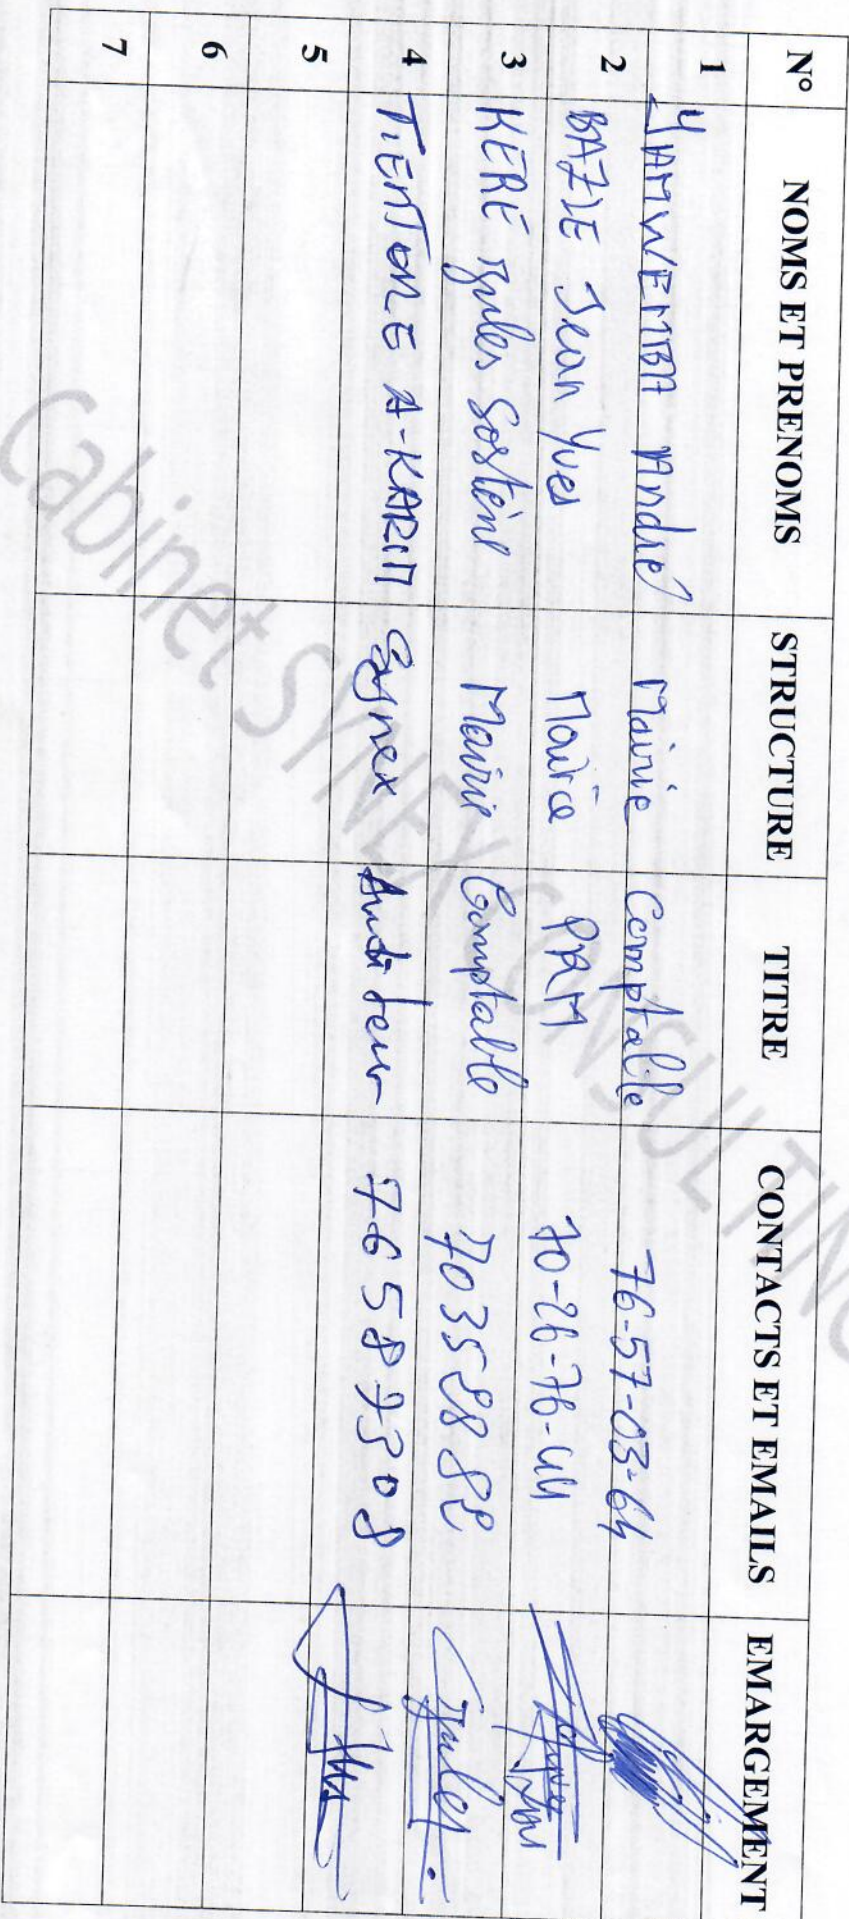 N° NOMS ET PRENOMS STRUCTURE TITRE CONTACTS ET EMAILS EMARGEMENT
1 YAMWEMBA André Mairie Comptable 76-57-03-64
2 BAZIE Jean Yves Mairie PRM 70-26-76-44
3 KERE Jules Sostène Mairie Comptable 70358882 Jules
4 TIENTORE A-KARIM Synex Auditeur 76589308
5
6
7
Cabinet SYNEX CONSULTING